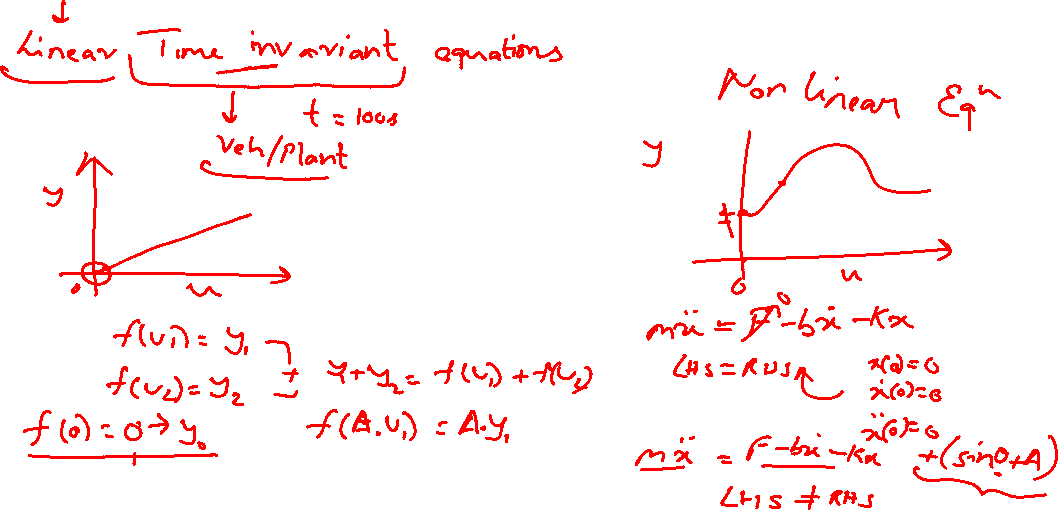 Linear Time invariant equations
t = 100s
Veh/Plant
y
0
u
f(u1) = y1
f(u2) = y2
+
y1+y2 = f(u1) + f(u2)
f(0) = 0 → y0
f(A.u1) = A.y1
Non linear Eqn
y
0
u
mẍ = F 0 -bẋ -Kx
LHS = RHS
x(0)=0
ẋ(0)=0
ẍ(0)=0
mẍ = F -bẋ -Kx +(sin0+A)
LHS ≠ RHS